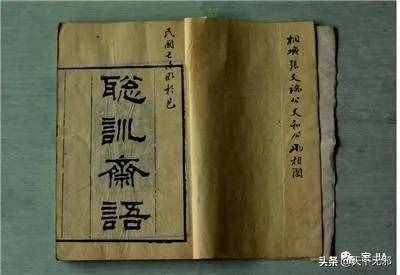 桐城張文端公文和公兩相國
民國
於邑
聰訓齋語
头条